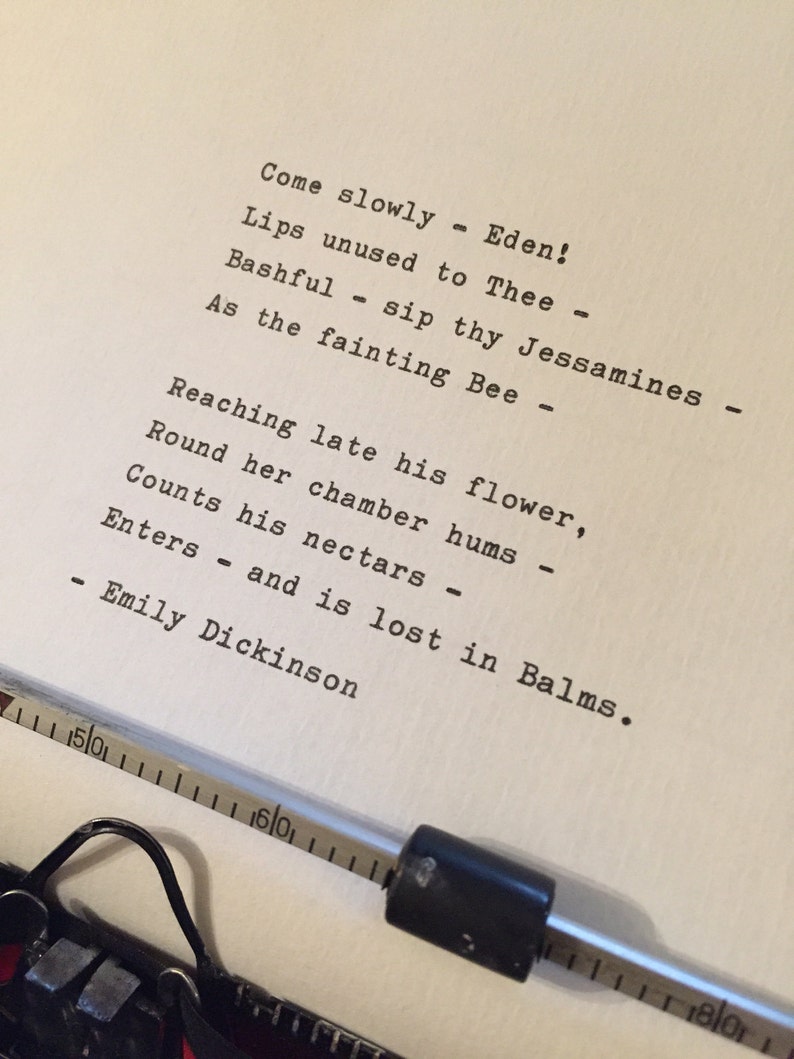 Come slowly - Eden!
Lips unused to Thee -
Bashful - sip thy Jessamines -
As the fainting Bee -
Reaching late his flower,
Round her chamber hums -
Counts his nectars -
Enters - and is lost in Balms.
- Emily Dickinson
50
60
80